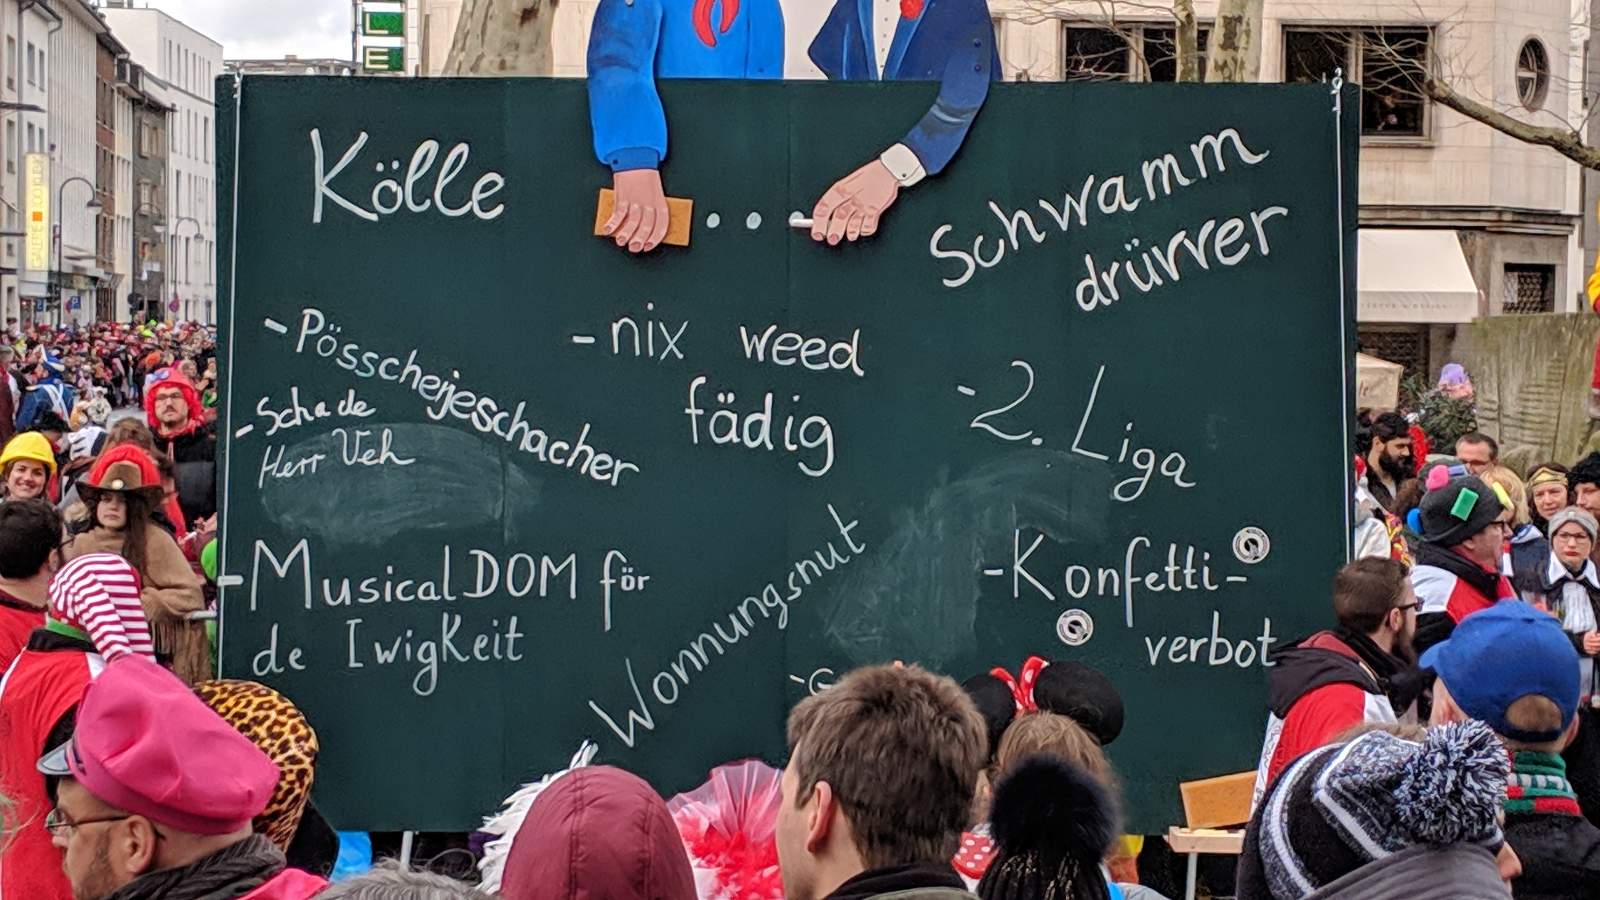 Kölle ... Schwamm
drüvver
- Pösscherjeschacher
- Schade
Herr Veh
- nix weed
fädig
- 2. Liga
- MusicalDOM för
de IwigKeit
Wonnungsnut
- Konfetti-
verbot
LE
GALERIE